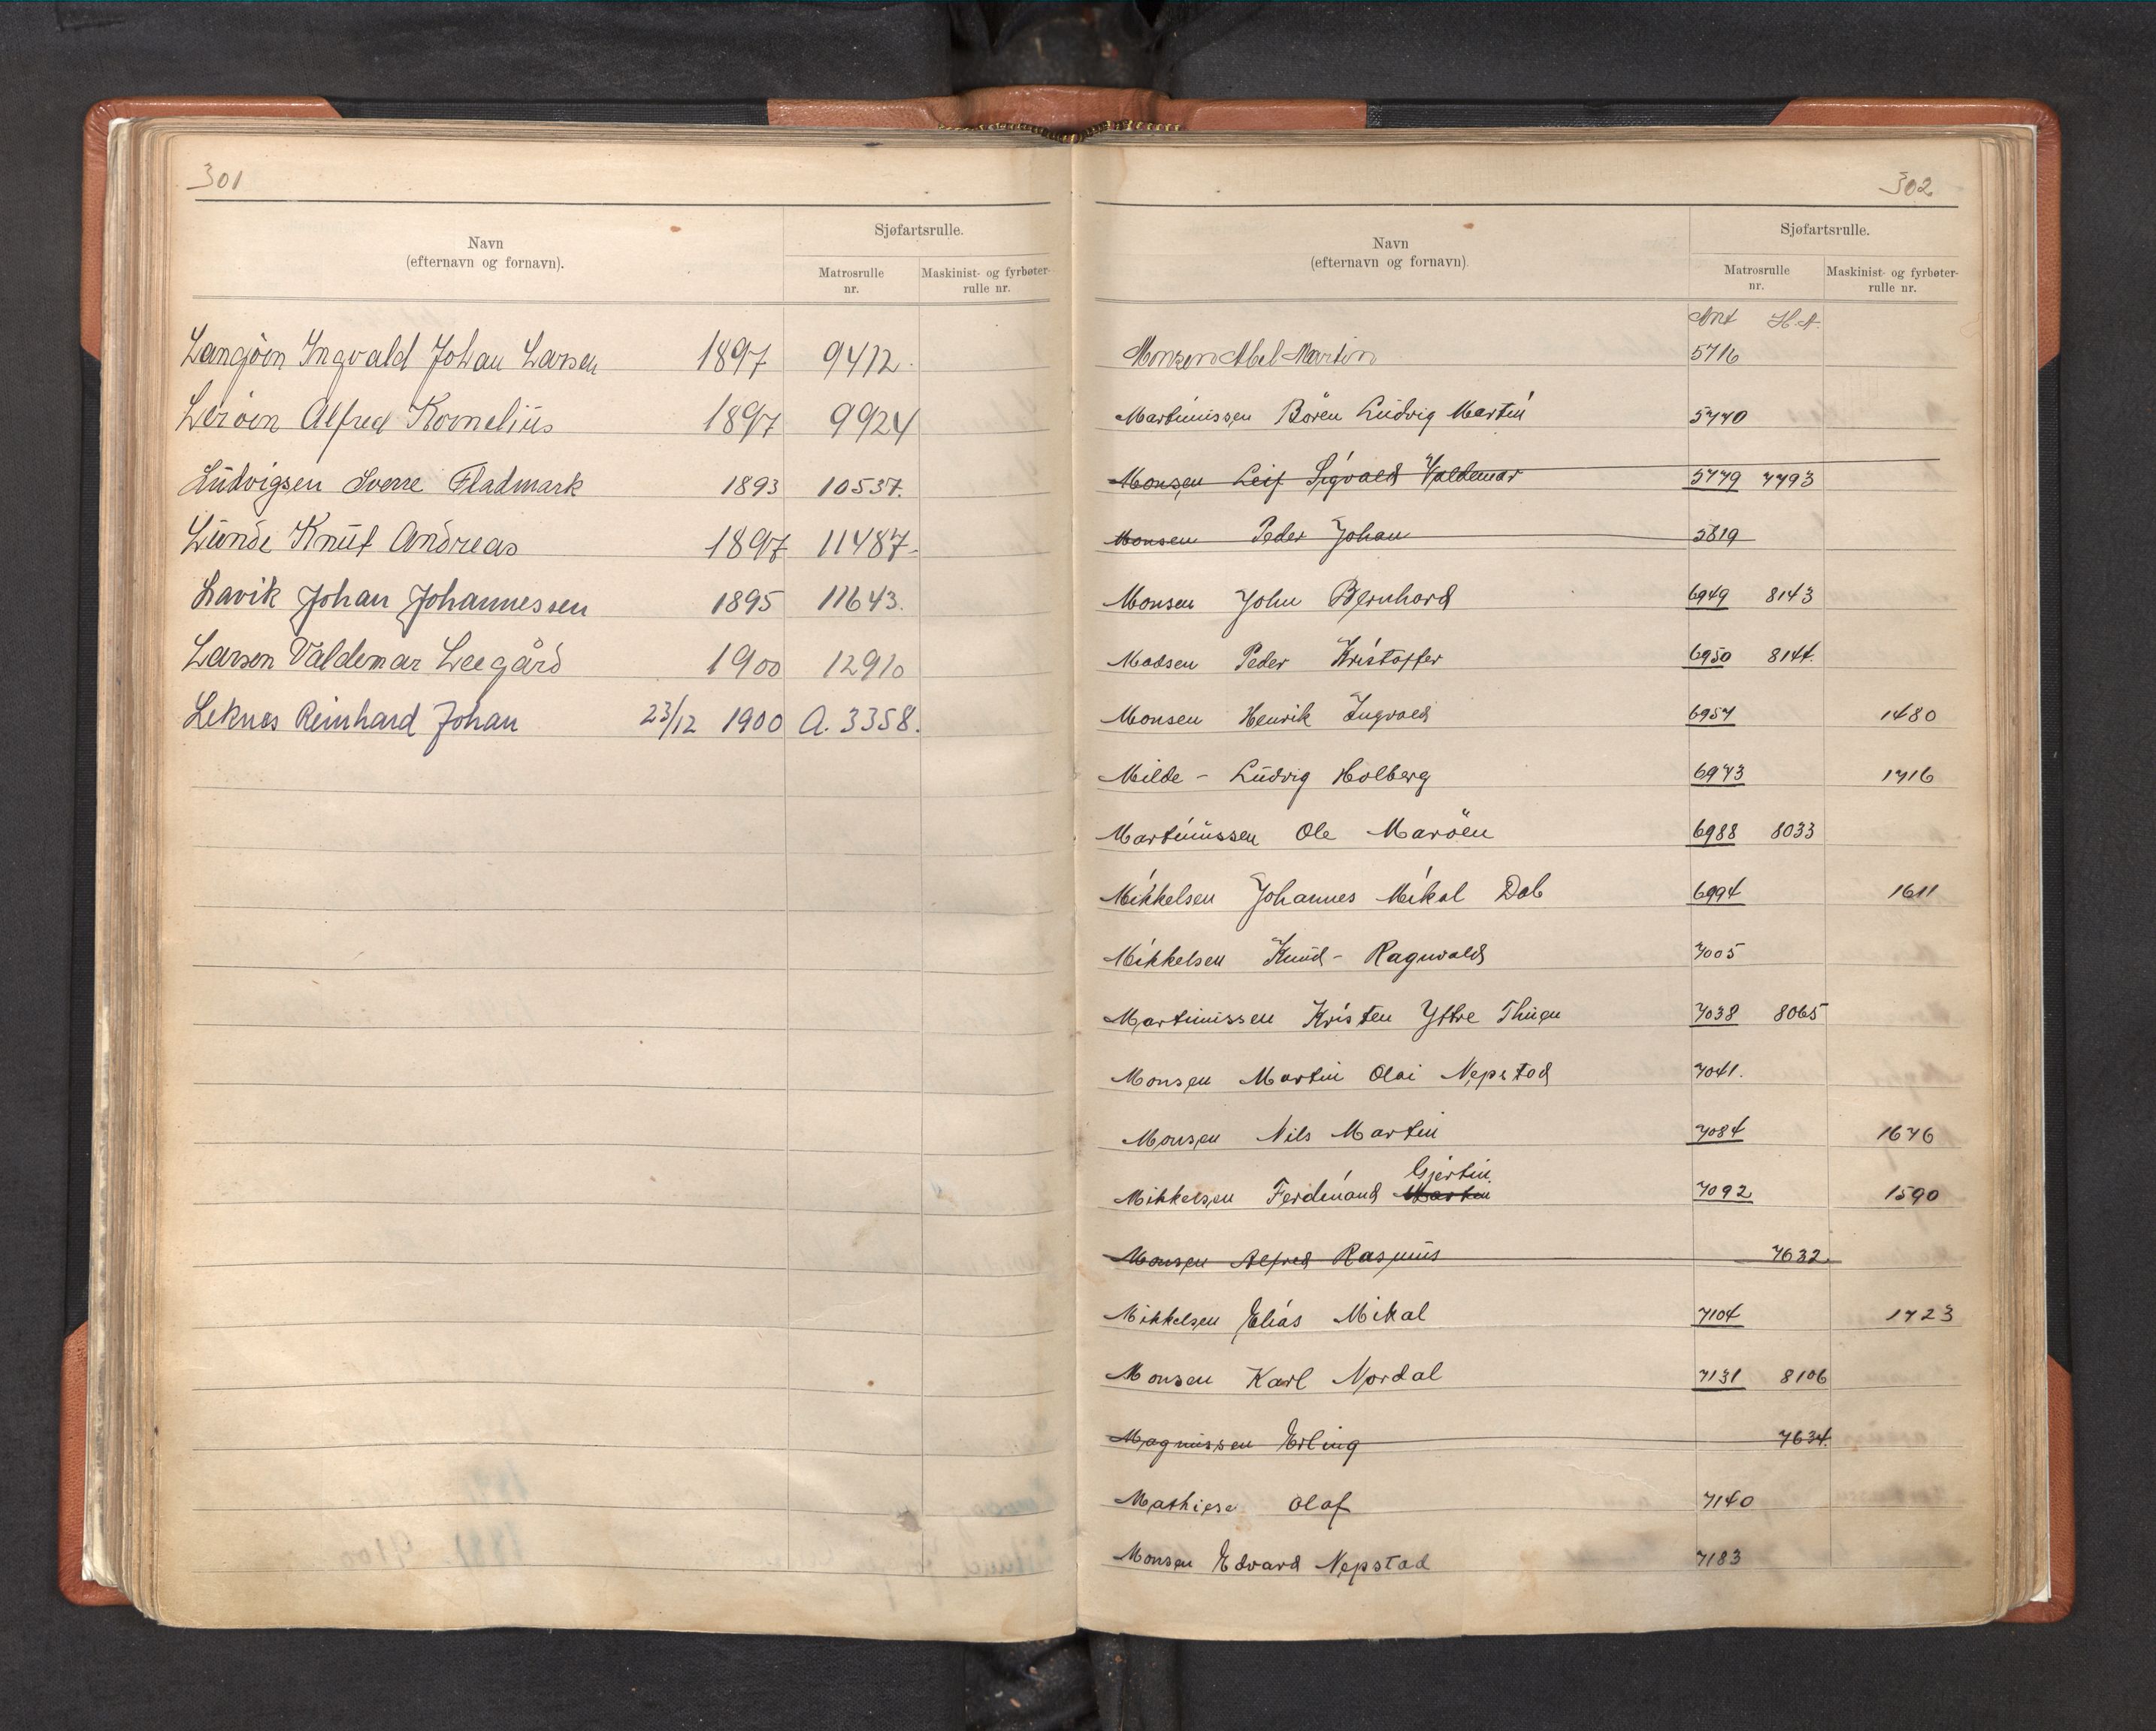 301
Navn
(efternavn og fornavn).
Sjøfartsrulle.
Matrosrulle
nr.
Maskinist- og fyrbøter-
rulle nr.
Langöen Ingvald Johan Larsen 1897 9412.
Leröen Alfred Kornelius 1897 9924
Ludvigsen Sverre Fladmark 1893 10537.
Lunde Knut Andreas 1897 11487.
Lavik Johan Johannessen 1895 11643.
Larsen Valdemar Leegård 1900 12910
Leknes Reinhard Johan 23/12 1900 A. 3358.
302
Navn
(efternavn og fornavn).
Sjøfartsrulle.
Matrosrulle
nr.
Maskinist- og fyrbøter-
rulle nr.
H.A.
Monsen Abel Martin 5716
Martinussen Bören Ludvig Martin 5770
Monsen Leif Sigvald Valdemar 5779 7793
Monsen Peder Johan 5819
Monsen John Bernhard 6949 8143
Madsen Peder Kristoffer 6950 8144.
Monsen Henrik Ingvald 6957 1480
Milde - Ludvig Holberg 6973 1716
Martinussen Ole Maröen 6988 8033
Mikkelsen Johannes Mikal Dal 6994 1611
Mikkelsen Knud - Ragnvald 7005
Martinussen Kristen Yttre Thuen 7038 8065
Monsen Martin Olai Nepstad 7041.
Monsen Nils Martin 7084 1676
Gjertin.
Mikkelsen Ferdinand Martin 7092 1590
Monsen Alfred Rasmus 7632.
Mikkelsen Elias Mikal 7104 1723
Monsen Karl Nordal 7131 8106
Magnussen Erling 7634.
Mathiese Olaf 7140
Monsen Edvard Nepstad 7183